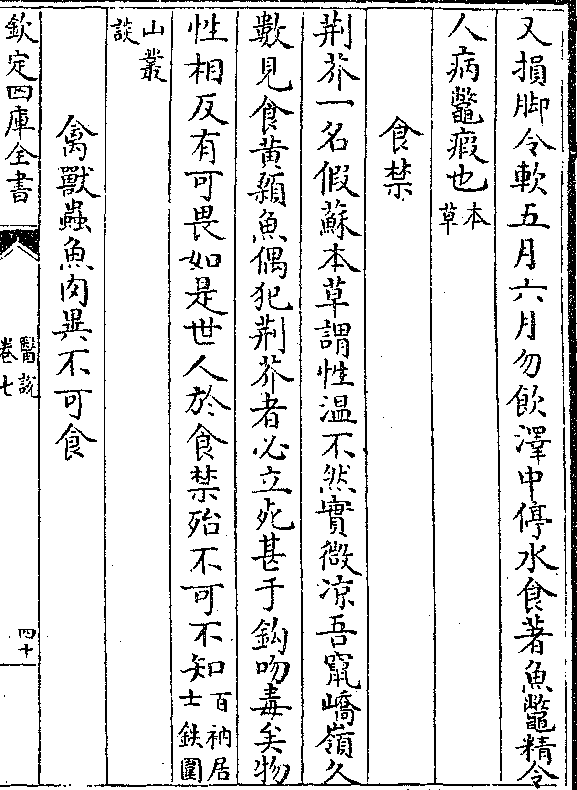 又損脚令軟五月六月勿飲澤中停水食著魚鼈精令
人病鼈瘕也本草
食禁
荆芥一名假蘇本草謂性温不然實微凉吾竄嶠嶺久
數見食黄顙魚偶犯荆芥者必立死甚于鈎吻毒矣物
性相反有可畏如是世人於食禁殆不可不知百衲居士鉄圍
山叢談
禽獸蟲魚肉異不可食
欽定四庫全書
醫説
卷七
四十